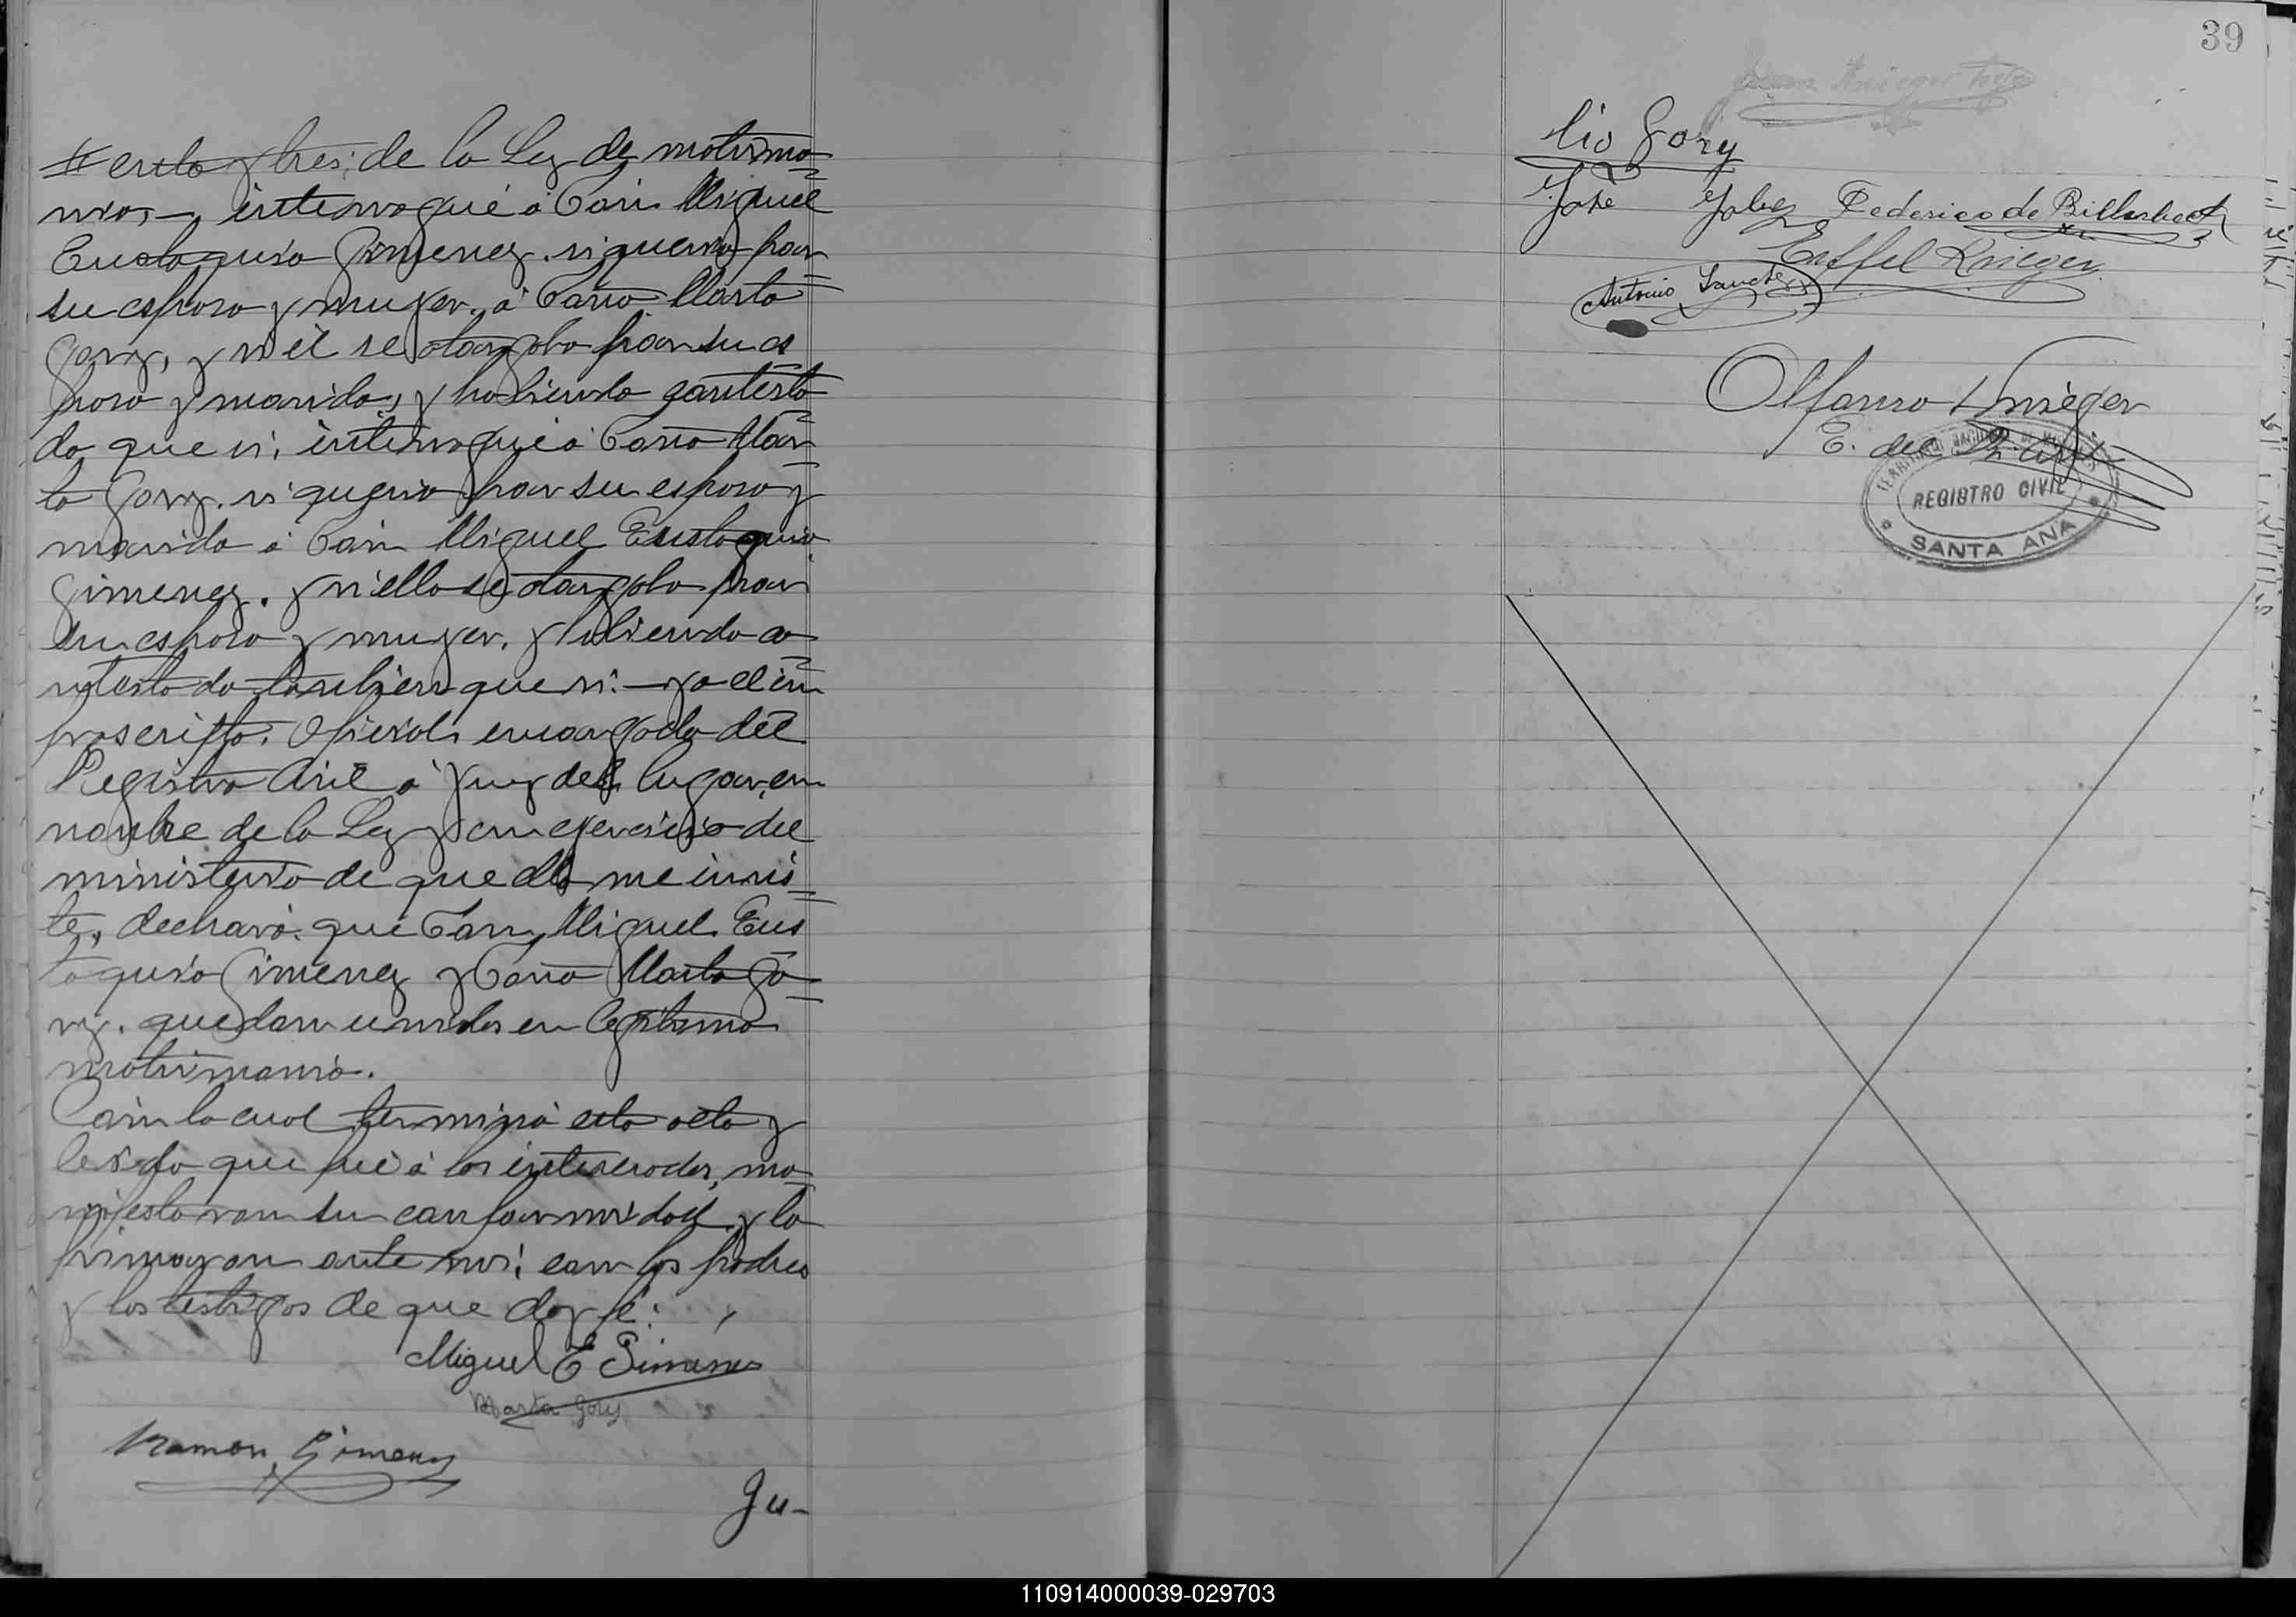 cuenta y tres; de la Ley de matrimo=
nios,— interrogué á Don Miguel
Eustaquio Gimenez. si queria por
su esposa y muger. á Doña Marta
Gory, y si él se otorgaba por su es
poso y marido, y habiendo contesta=
do que si, interrogué á Doña Mar=
ta Gory. si queria por su esposo y
marido á Don Miguel Eustaquio
Gimenez. y si ella se otorgaba por
su esposa y muger. y habiendo co=
ntestado tambien que si.— yo el in
frascripto. Oficial encargado del
Registro Civil á Juez del lugar, en
nombre de la Ley y en ejercicio del
ministerio de que ella me invis=
te, declaró. que Don, Miguel. Eus
taquio Gimenez y Doña Marta Go=
ry. quedan unidos en legitimo
matrimonio.
Con lo cual terminó esta acta y
leida que fué á los interesados, ma=
nifestaron su conformidad y la
firmaron ante mi; con los padres
y los testigos de que doy fé:
Miguel E Gimenez
Marta Gory
Ramon Gimenez
Ju-
39
Juan Krieger
lio Gory
José Federico de Billerbeck
Eiffel Krieger
Antonio Sanchez
Alfonso Krieger
E. del R. Civil
TERRITORIO NACIONAL DE MISIONES
REGISTRO CIVIL
SANTA ANA
110914000039-029703